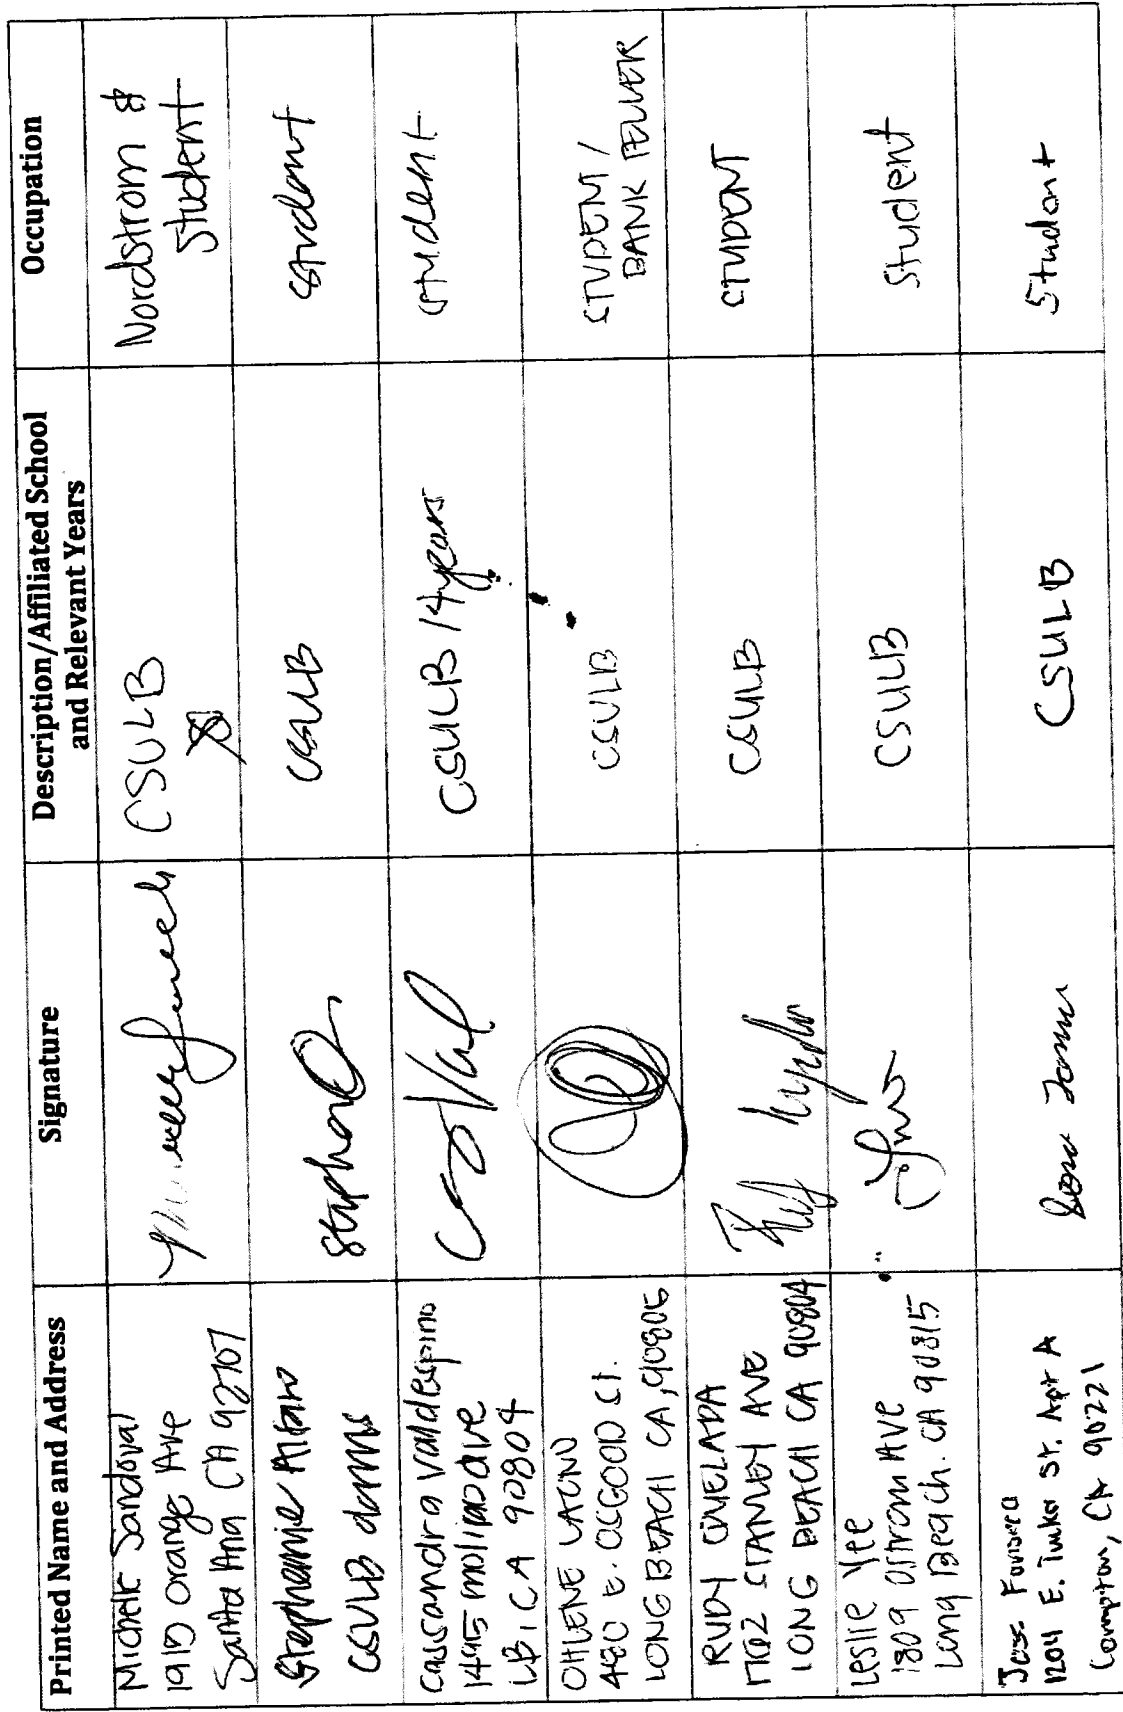 Printed Name and Address
Signature
Description/Affiliated School
and Relevant Years
Occupation
Michelle Sandoval
1915 Orange Ave
Santa Ana CA 92707
CSULB
Nordstrom &
Student
Stephanie Alfaro
CSULB dorms
CSULB
student
Cassandra Valdespino
1445 molino ave
LB, CA 90804
CSULB / 4 years
student
LONG BEACH CA, 90805
CSULB
STUDENT /
BANK TELLER
RUDY
STANLEY AVE
LONG BEACH CA 90804
CSULB
STUDENT
Leslie Yee
1809 Ostrom Ave
Long Beach. CA 90815
CSULB
Student
Jose Fonseca
1204 E. Tucker St. Apt A
Compton, CA 90221
CSULB
Student